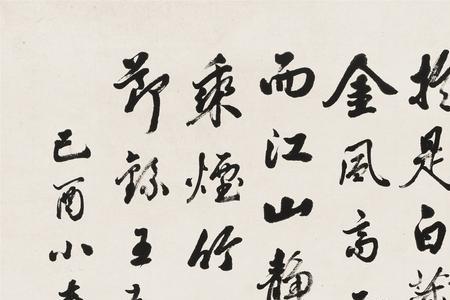 於是白
金風高
而江山靜
乘煙竹
節錄王
己酉小春